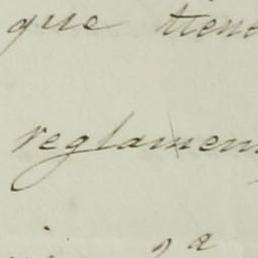 que tiene
reglamen
2ª